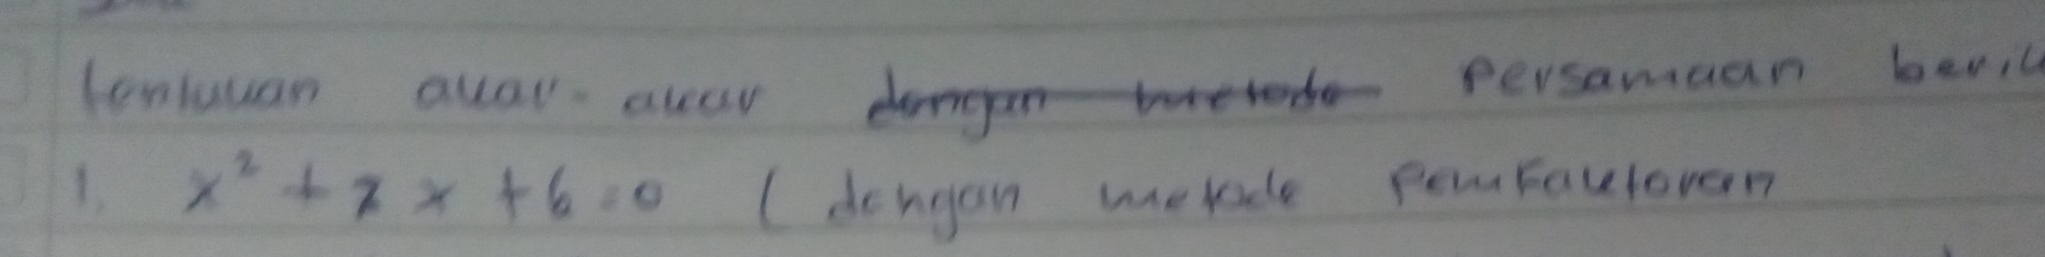 tentukan akar-akar persamaan berik
1. x² + 7x + 6 = 0 (dengan metode pemfaktoran